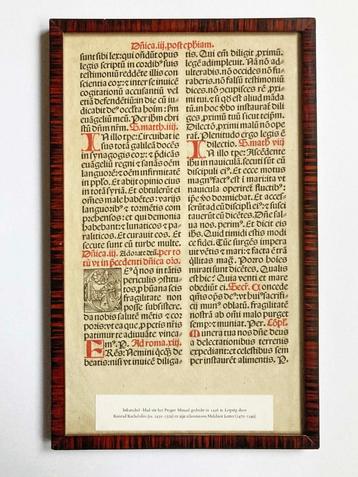 Dñica.iij.post ephiam.
sunt sibi lex: qui ondūt opus
legis scriptū in cordibꝰ suis
testimoniū reddēte illis con
scientia eoꝝ: ⁊ inter se inuicē
cogitationū accusantiū vel
etiā defendentiū: in die cū iu
dicabit deꝰ occulta hoīm: fm
euāgeliū meū. Per ihm chri
stū dñm nr̄m. S. math. iiij.
In illo tꝑe: Circuibat ie
sus totā galileā docēs
in synagogis eoꝝ: ⁊ p̄dicās
euāgeliū regni: ⁊ sanās oēm
languorē: ⁊ oēm infirmitatē
in pplo. Et abijt opinio eius
in totā syriā. Et obtulerūt ei
oēs male habētes: varijs
languoribꝰ ⁊ tormētis com
prehensos: ⁊ qui demonia
habebant: ⁊ lunaticos ⁊ pa
raliticos. Et curauit eos. Et
secute sunt eū turbe multe.
Dñica.iiij. Ad oratōem. per to
tū vt in p̄cedenti dñica. Oro.
Deꝰ q nos in tātis
periculis ꝯstitutos
ꝓ humana scis
fragilitate non
posse subsistere:
da nobis salutē mētis ⁊ cor
poris: vt ea que ꝓ pctīs nr̄is
patimur te adiuuāte vinca-
mꝰ. P. Ad roma. xiij.
FRēs: Nemini qcq̄ de
beatis: nisi vt inuicē diliga-
tis. Qui em̄ diligit ꝓximū:
legē adimpleuit. Nā nō ad-
ulterabis. nō occides nō fu
raberis. nō falsū testimoniū
dices. nō ꝯcupisces rē ꝓxi
mi tui. ⁊ si qd̄ est aliud mādā
tū: in hoc v̄bo instaurat̄ dili
ges ꝓximū tuū sicut teip̄m.
Dilectio ꝓximi malū nō ope
rat̄. Plenitudo ergo legis ē
dilectio. S. math. viij
In illo tꝑe: Ascēdente
ihu in nauiculā. secuti sūt eū
discipuli eiꝰ. Et ecce motus
magnꝰ factꝰ est ī mari: ita vt
nauicula operiret̄ fluctibꝰ:
ipse vo dormiebat. Et acces
serūt ad eū discipuli eiꝰ: ⁊ susci
tauerūt eū dicentes: Dñe sal
ua nos, perimꝰ. Et dicit eis
iesus. Quid timidi estis mo
dice fidei. Tūc surgēs impera
uit vētis ⁊ mari: ⁊ facta ē trā
qllitas mag. Porro hoīes
mirati sunt dicētes. Qualis
est hic? Quia venti ⁊ mare
obediunt ei. Secr. Cōcede
qs ops deꝰ: vt huiꝰ sacrifi
cij munꝰ oblatum. fragilita
tē nostrā ab omī malo purget
semꝑ ⁊ muniat. Per. Cōpl.
Munera tua nos dñe deus
a delectationibus terrenis
expediant: ⁊ celestibus sem
per instaurent alimentis. P.
Inkunabel - blad uit het Prager Missaal gedrukt in 1498 te Leipzig door
Konrad Kachelofen (ca. 1450-1529) en zijn schoonzoon Melchior Lotter (1470-1549).